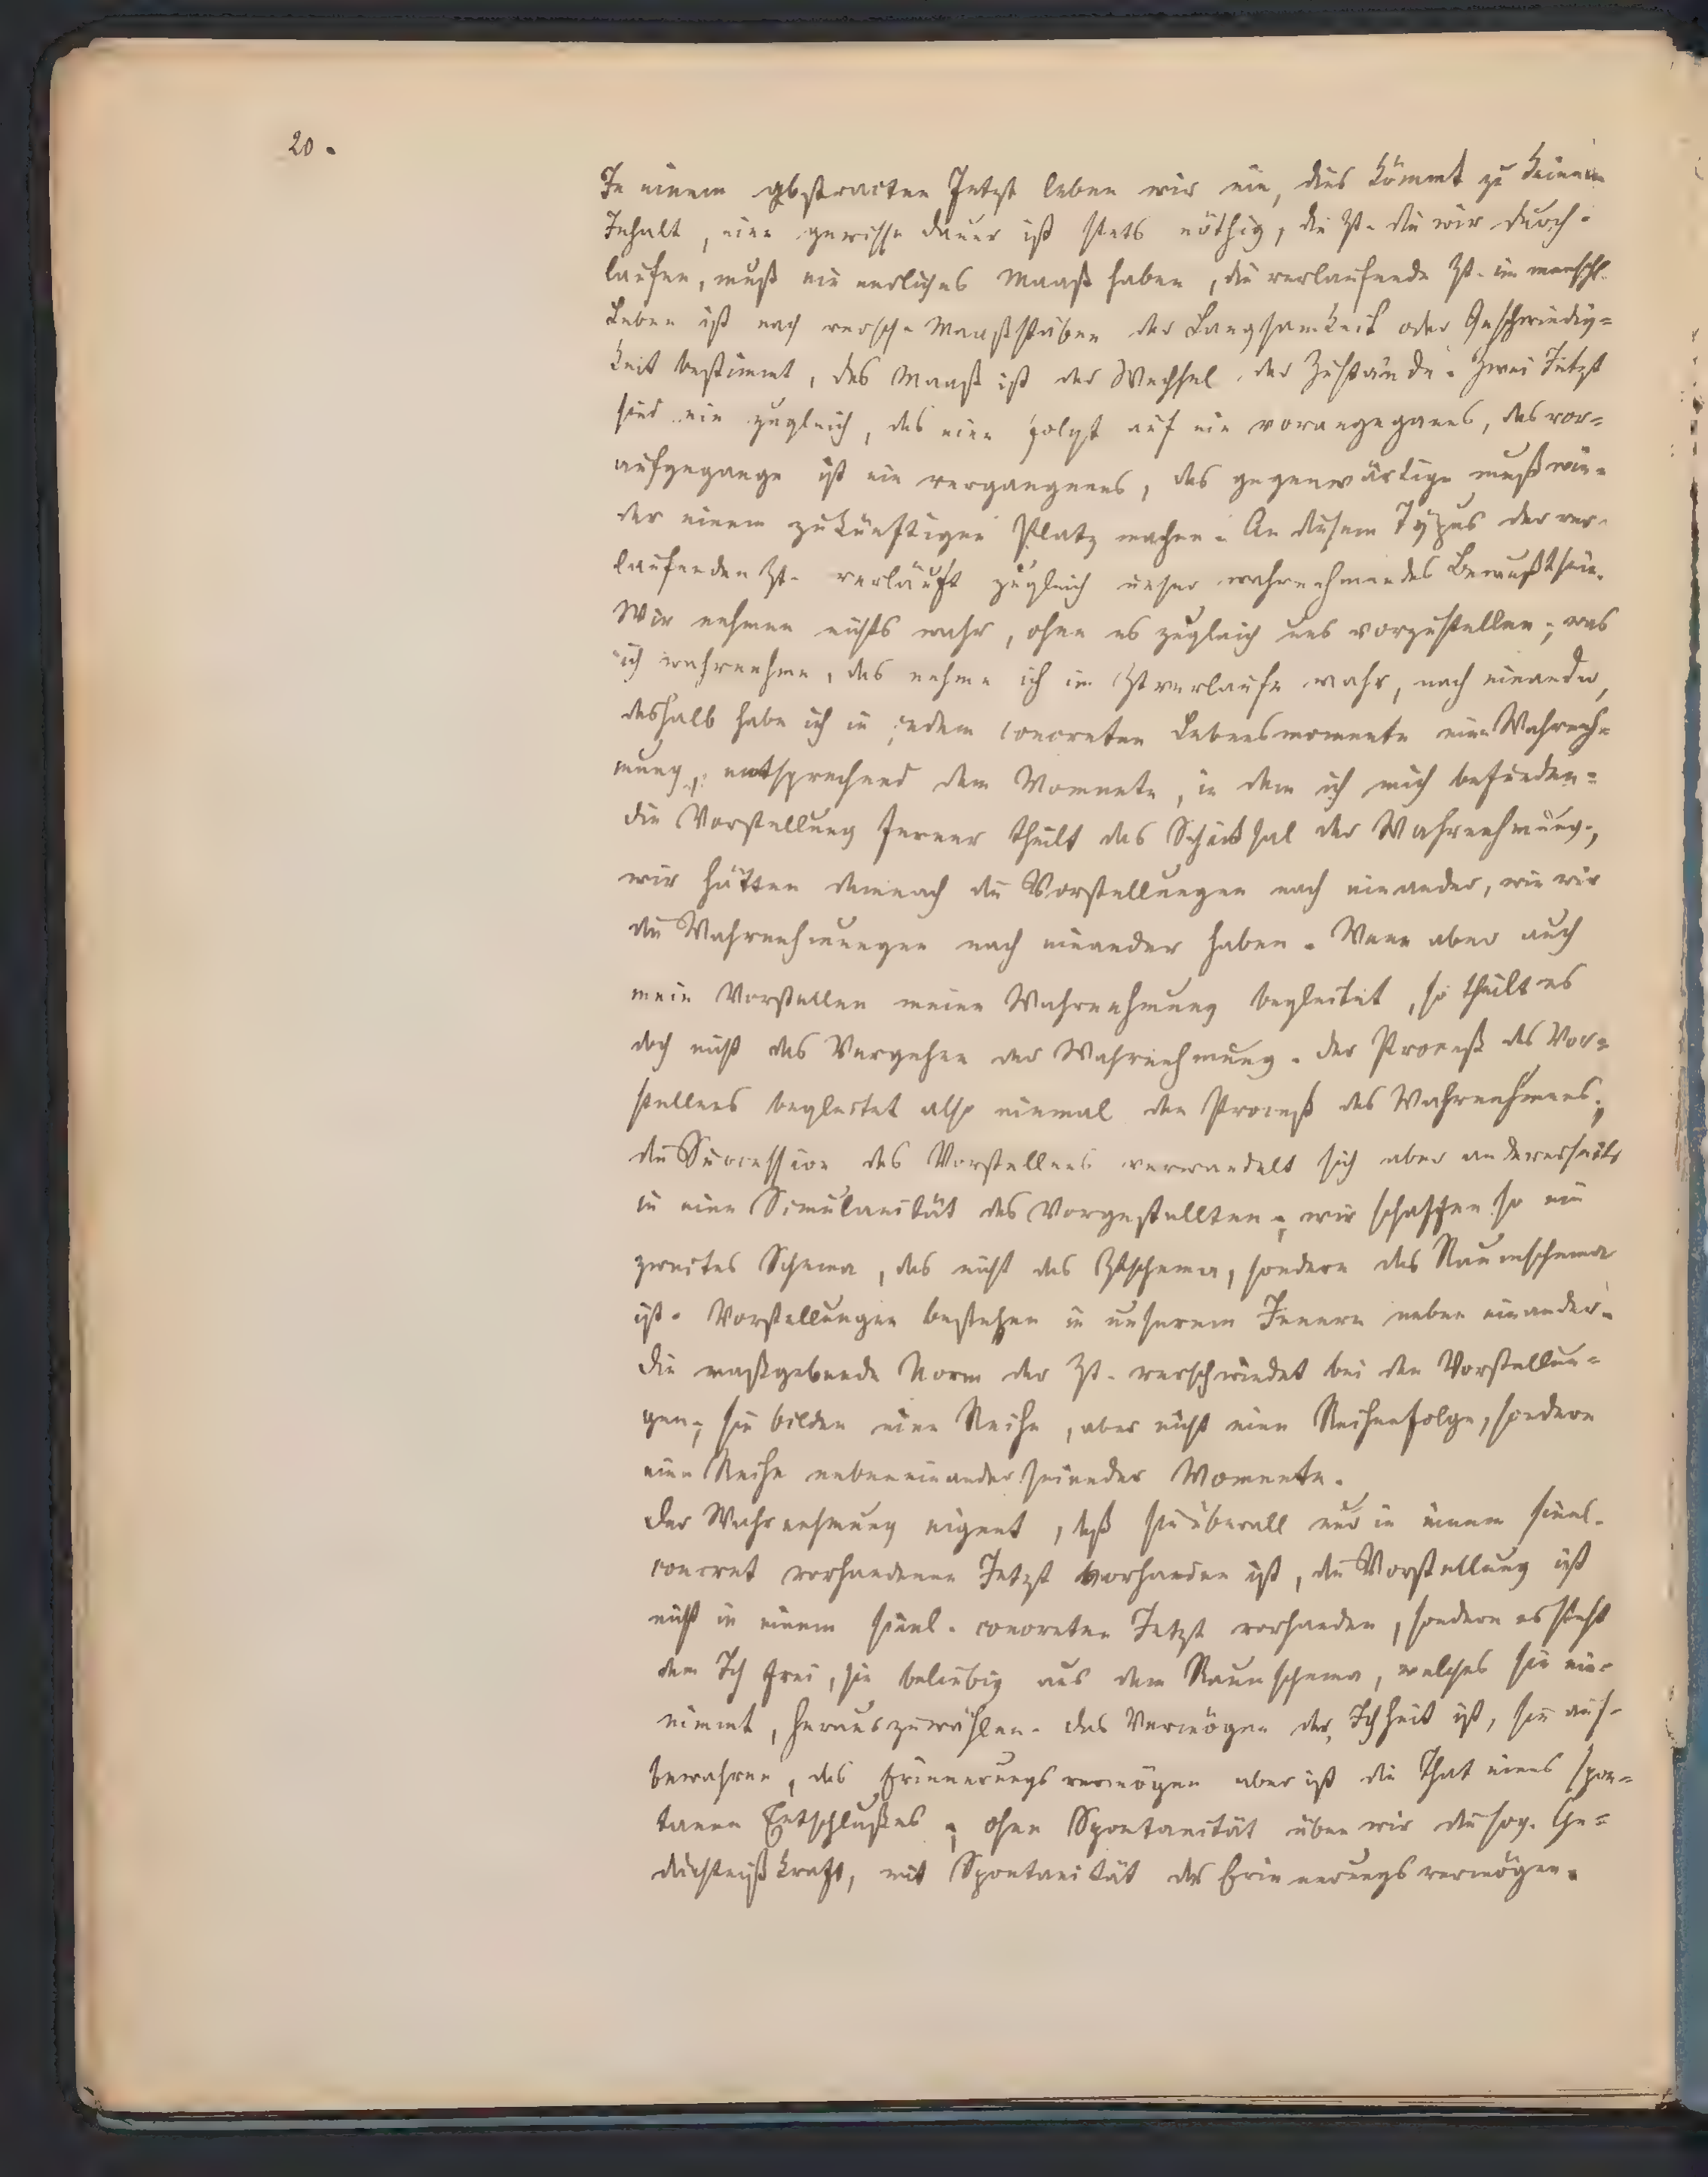 20.
In einem abstracten Jetzt leben wir nie, dies kömmt zu keinem
Inhalt, eine gewisse Dauer ist stets nöthig, die Zt. die wir durch-
laufen, muß ein endliches Maaß haben, die verlaufende Zt. im menschl.
Leben ist nach versch. Maaßstäben der Langsamkeit oder Geschwindig=
keit bestimmt, das Maaß ist der Wechsel der Zustände. Zwei Jetzt
sind nie zugleich, das eine folgt auf ein vorangeganes, das vor=
aufgegange ist ein vergangnes, das gegenwärtige muß wie-
der einem zukünftigen Platz machen. An diesem Typus der ver-
laufenden Zt. verläuft zugleich unser wahrnehmendes Bewußtsein.
Wir nehmen nichts wahr, ohne es zugleich uns vorzustellen; was
ich wahrnehme, das nehme ich im Ztverlaufe wahr, nach einander,
deshalb habe ich in jedem concreten Lebensmomente eine Wahrneh=
mung, entsprechend dem Momente, in dem ich mich befinden=
Die Vorstellung ferner theilt das Schicksal der Wahrnehmung,
wir hätten demnach die Vorstellungen nach einander, wie wir
die Wahrnehmungen nach einander haben. Wenn aber auch
mein Vorstellen meine Wahrnehmung begleitet, so theilt es
doch nicht das Vergehen der Wahrnehmung. Der Proceß des Vor=
stellens begleitet also einmal den Proceß des Wahrnehmens;
die Succession des Vorstellens verwandelt sich aber anderersaits
in eine Simulanität des Vorgestellten; wir schaffen so ein
zweites Schema, das nicht das Ztschema, sondern das Raumschema
ist. Vorstellungen bestehen in unserem Innern neben einander.
Die maßgebende Norm der Zt. verschwindet bei den Vorstellun=
gen; sie bilden eine Reihe, aber nicht eine Reihenfolge, sondern
eine Reihe nebeneinander seiender Momente.
Der Wahrnehmung eignet, daß sie überall nur in einem sinnl.
concret vorhandenen Jetzt vorhanden ist, die Vorstellung ist
nicht in einem sinnl. concreten Jetzt vorhanden, sondern es steht
dem Ich frei, sie beliebig aus dem Raumschema, welches sie ein-
nimmt, herauszuwählen. Das Vermögen der Ichheit ist, sie auf-
bewahren, das Erinnerungsvermögen aber ist die That eines spon=
tanen Entschlußes; ohne Spontanität üben wir die sog. Ge=
dächtnißkraft, mit Spontanität das Erinnerungsvermögen.